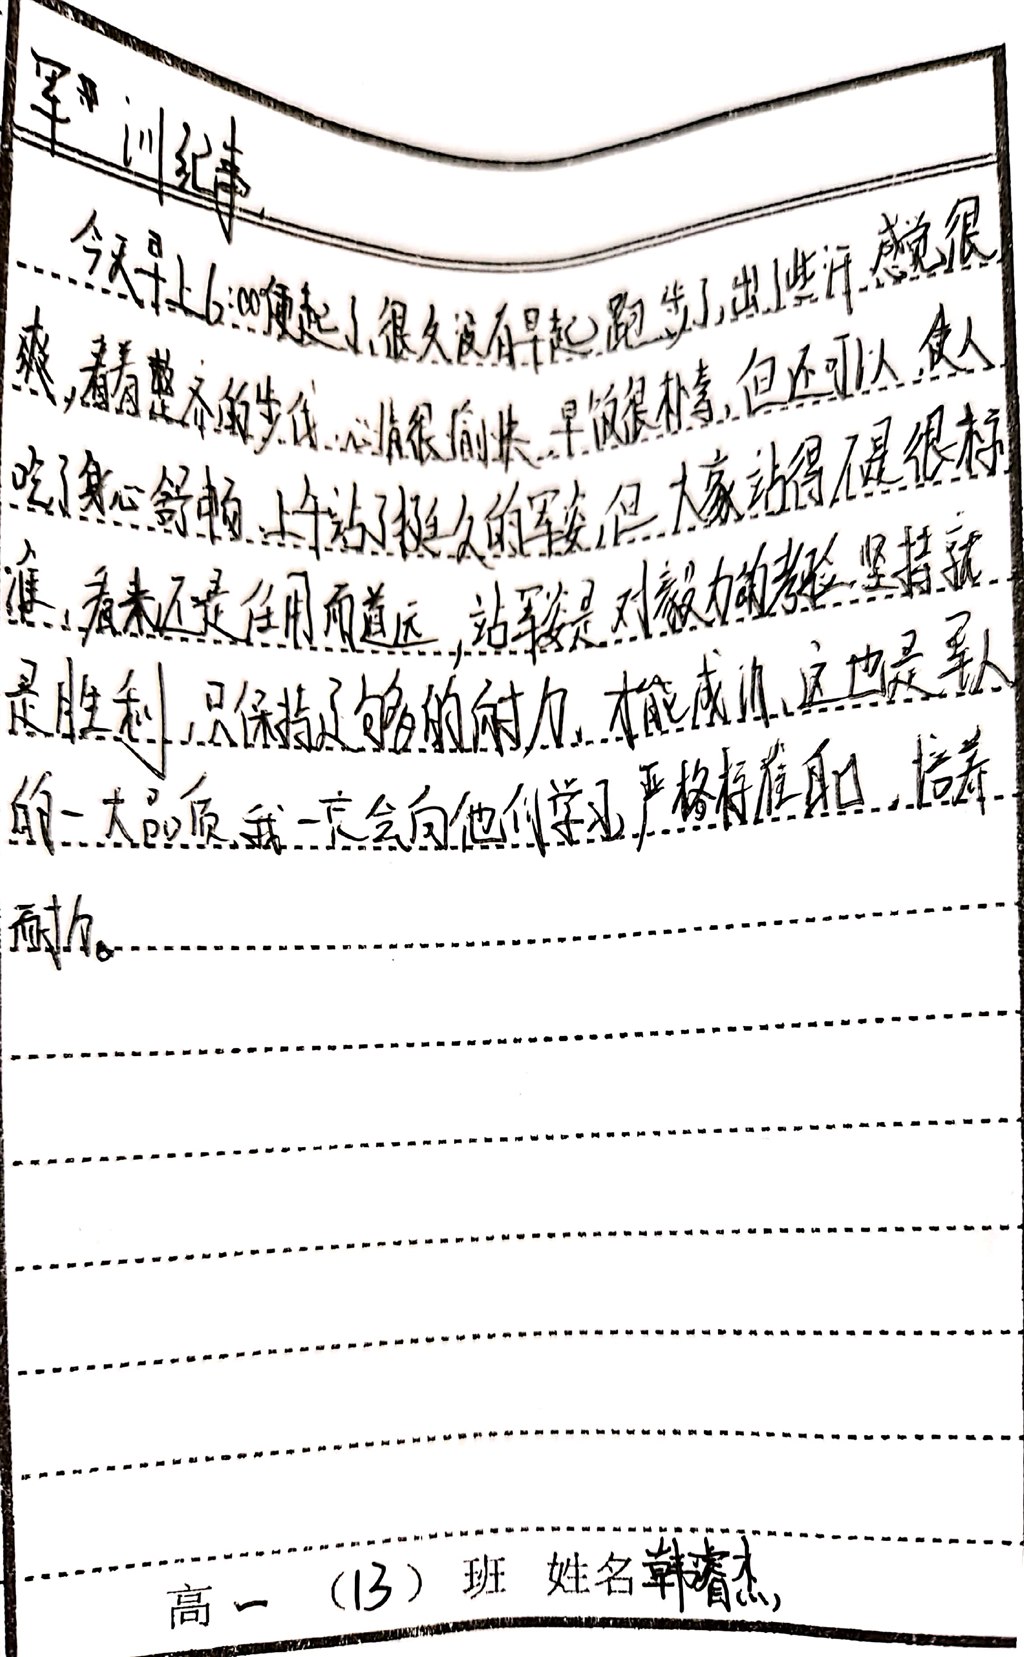 军训纪事
今天早上6:00便起了,很久没有早起跑步了,出了些汗,感觉很
爽,看着整齐的步伐,心情很愉快,早饭很朴素,但还可以,使人
吃了身心舒畅,上午站了挺久的军姿,但大家站得不是很标
准,看来还是任用而道远,站军姿是对毅力的考验,坚持就
是胜利,只保持足够的耐力,才能成功,这也是军人
的一大品质,我一定会向他们学习,严格标准自己,培养
耐力。
高一(13)班 姓名韩睿杰